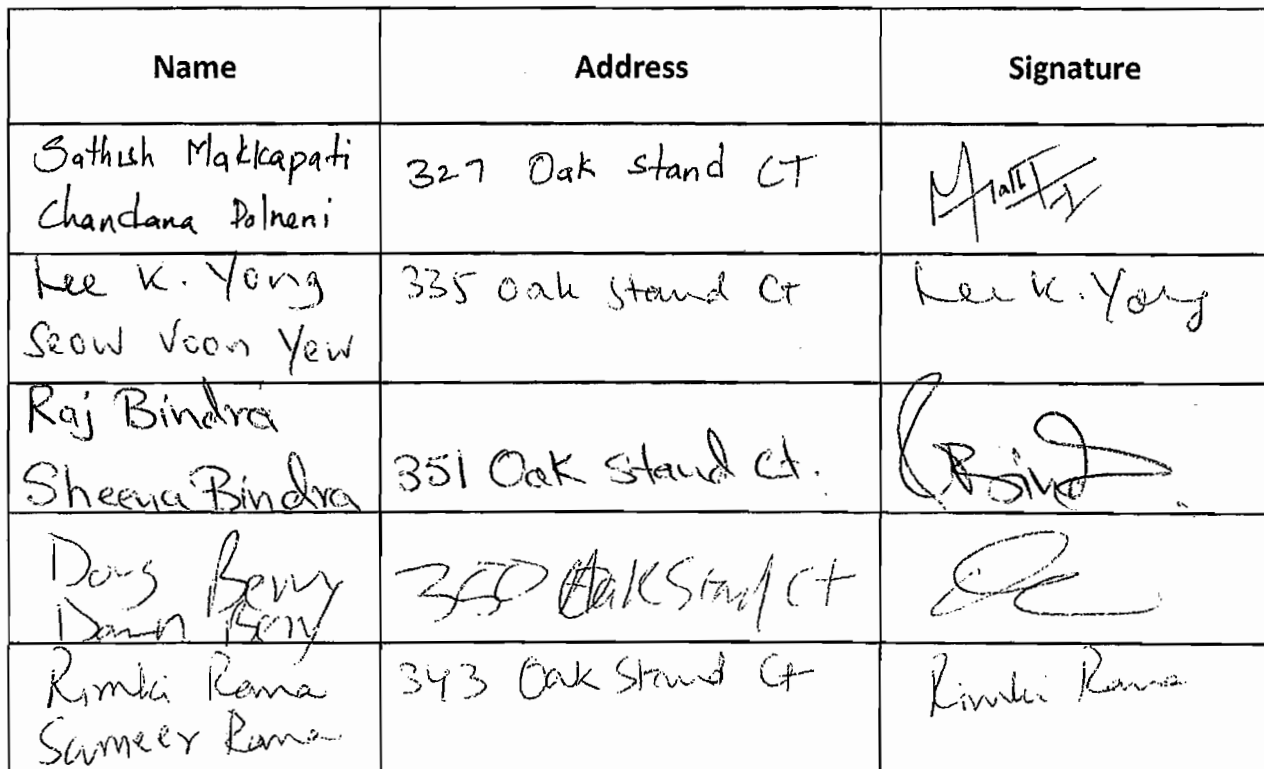 Name Address Signature
Sathish Makkapati
Chandana Polneni
327 Oak Stand CT
Lee K. Yong
Seow Voon Yew
335 Oak Stand Ct
Lee K. Yong
Raj Bindra
Sheena Bindra
351 Oak Stand Ct.
Doug Berry
Dawn Berry
350 Oak Stand Ct
Rimki Rama
Sameer Rama
343 Oak Stand Ct
Rimki Rama